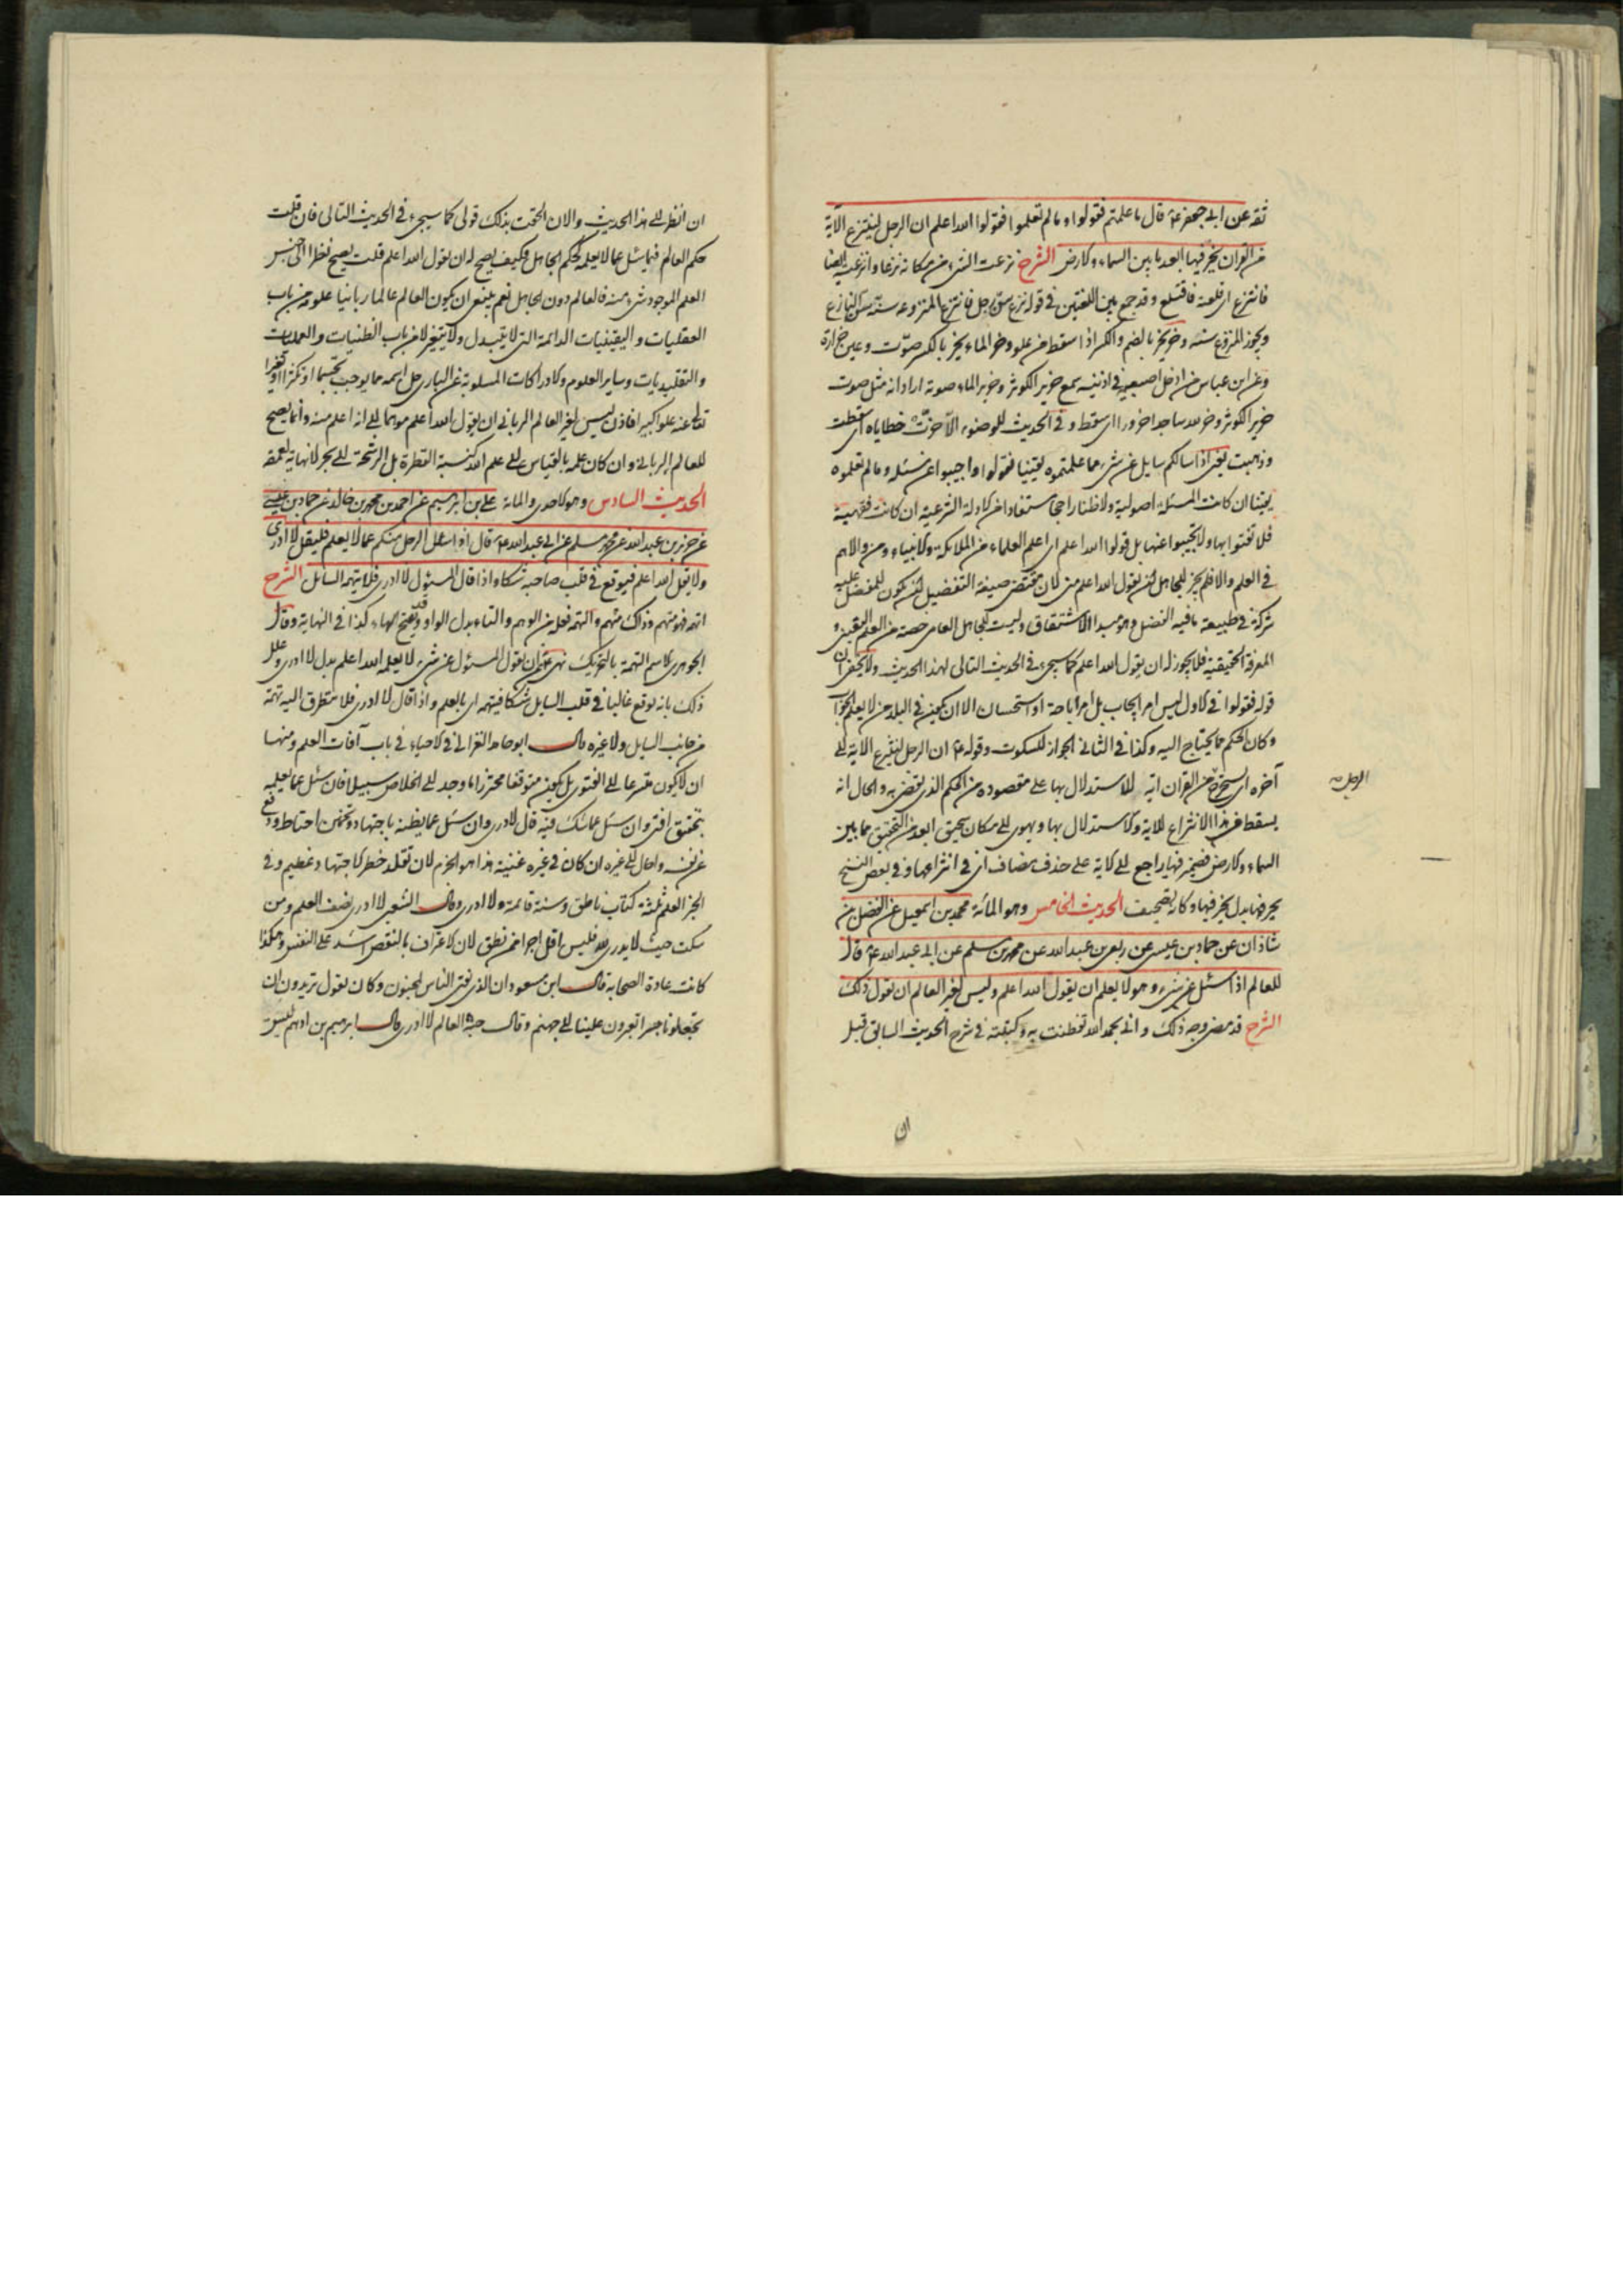 ثقة عن ابي جعفر ع قال ما علمتم فقولوا وما لم تعلموا فقولوا الله اعلم ان الرجل لينتزع الآية
من القران يخر فيها ابعد ما بين السماء والارض الشرح نزعت الشيء من مكانه نزعا وانتزعته ايضا
فانتزع اي قلعته فاقتلع وقد جمع بين اللغتين في قوله
ويجوز وخر يخر بالضم والكسر اذا سقط من علو وخر الماء يخر بالكسر صوّت وعين خرارة
وعن ابن عباس من ادخل اصبعيه في اذنيه سمع خرير الكوثر وخرير الماء صوته اراد انه مثل صوت
خرير الكوثر وخر لله ساجدا خرورا اي سقط وفي الحديث للوضوء الا خرّت خطاياه اي سقطت
وذهبت يعني اذا سالكم سايل عن شيء مما علمتموه يقينيا فقولوا واجيبوا عن مسئله وما لم تعلموه
يقينا ان كانت المسئلة اصولية ولا ظنا راجحا مستفادا من الادلة الشرعية ان كانت فقهية
فلا تفتوا بها ولا تجيبوا عنها بل قولوا الله اعلم اي اعلم العلماء من الملائكة والانبياء ومن والاهم
في العلم والا فلم يجز للجاهل ان يقول الله اعلم مني لان مقتضى صيغة التفضيل ان يكون للمفضل عليه
شركة في طبيعة ما فيه الفضل وهو مبدا الاشتقاق وليست للجاهل العامي حصة من العلم اليقيني و
المعرفة الحقيقية فلا يجوز له ان يقول الله اعلم كما سيجيء في الحديث التالي لهذا الحديث ولا يخفى ان
قوله فقولوا في الاول ليس امر ايجاب بل امر اباحة او استحسان الا ان يكون في البلد من لا يعلم الجواب
وكان الحكم مما يحتاج اليه وكذا في الثاني لجواز السكوت وقوله ع ان الرجل لينتزع الاية الى
آخره اي يستخرج من القران اية للاستدلال بها على مقصوده من الحكم الذي يقضي به والحال انه
الرجل
يسقط في هذا الانتزاع للاية والاستدلال بها ويهوي الى مكان سحيق ابعد من التحقيق مما بين
السماء والارض فضمير فيها راجع الى الاية على حذف مضاف اي في انتزاعها وفي بعض النسخ
يحرفها بدل يخر فيها وكانه تصحيف الحديث الخامس وهو المائة محمد بن اسمعيل عن الفضل بن
شاذان عن حماد بن عيسى عن ربعي بن عبد الله عن محمد بن مسلم عن ابي عبد الله ع قال
للعالم اذا سئل عن شيء وهو لا يعلمه ان يقول الله اعلم وليس لغير العالم ان يقول ذلك
الشرح قد مضى وجه ذلك واني بحمد الله تفطنت به وكتبته في شرح الحديث السابق قبل
ان
ان انظر الى هذا الحديث والان الحقت بذلك قولي كما سيجيء في الحديث التالي فان قلت
حكم العالم فيما سئل عما لا يعلمه كحكم الجاهل فكيف يصح له ان يقول الله اعلم قلت يصح نظرا الى جنس
العلم الموجود شيء منه في العالم دون الجاهل نعم ينبغي ان يكون العالم عالما ربانيا علومه من باب
العقليات واليقينيات الدائمة التي لا يتبدل ولا يتغير لا من باب الظنيات والعمليات
والتقليديات وساير العلوم والادراكات المسلوبة عن الباري جل اسمه مما يوجب تجسما او تكثرا او تغيرا
تعالى عنه علوا كبيرا فاذن ليس لغير العالم الرباني ان يقول الله اعلم موهما الى انه اعلم منه وانما يصح
للعالم الرباني وان كان علمه بالقياس الى علم الله كنسبة القطرة بل الرشحة الى بحر لا نهاية لعمقه
الحديث السادس وهو الاحدى والمائة علي بن ابرهيم عن احمد بن محمد بن خالد عن حماد بن عيسى
عن حريز بن عبد الله عن محمد بن مسلم عن ابي عبد الله ع قال اذا سئل الرجل منكم عما لا يعلم فليقل لا ادري
ولا يقل الله اعلم فيوقع في قلب صاحبه شكا واذا قال المسئول لا ادري فلا يتهمه السائل الشرح
اتهمه فهو متهم وذلك متهم والتهمة فعلة من الوهم والتاء بدل الواو وقد يفتح الهاء كذا في النهاية وقال
الجوهري الاسم التهمة بالتحريك نهى ع ان يقول المسئول عن شيء لا يعلمه الله اعلم بدل لا ادري وعلل
ذلك بانه يوقع غالبا في قلب السايل شكا فيتهمه اي بالعلم واذا قال لا ادري فلا يتطرق اليه تهمة
من جانب السايل ولا غيره قال ابو حامد الغزالي في الاحياء في باب آفات العلم ومنها
ان لا يكون متسرعا الى الفتوى بل يكون متوقفا محترزا ما وجد الى الخلاص سبيلا فان سئل عما يعلمه
بتحقيق افتى وان سئل عما يشك فيه قال لا ادري وان سئل عما يظنه باجتهاد وتخمين احتاط ودفع
عن نفسه واحال الى غيره ان كان في غيره غنية هذا هو الحزم لان تقلد خطر الاجتهاد عظيم وفي
الخبر العلم ثلثة كتاب ناطق وسنة قائمة ولا ادري وقال الشعبي لا ادري نصف العلم ومن
سكت حيث لا يدري لله فليس اقل اجرا ممن نطق لان الاعتراف بالنقص اشد على النفس وهكذا
كانت عادة الصحابة قال ابن مسعود ان الذي يفتي الناس لمجنون وكان يقول تريدون ان
تجعلونا جسرا تعبرون علينا الى جهنم وقال جنة العالم لا ادري وقال ابرهيم بن ادهم ليس